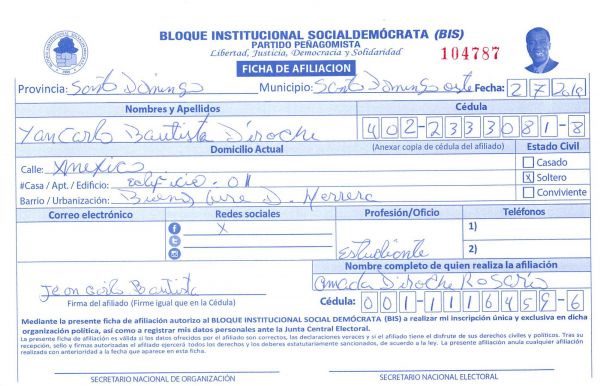 BLOQUE INSTITUCIONAL SOCIALDEMÓCRATA (BIS)
PARTIDO PEÑAGOMISTA
Libertad, Justicia, Democracia y Solidaridad
104787
FICHA DE AFILIACION
Provincia: Santo Domingo Municipio: Santo Domingo oste Fecha: 2 7 2019
Nombres y Apellidos Cédula
Yancarlo Bautista Diroche 402-2333081-8
Domicilio Actual (Anexar copia de cédula del afiliado) Estado Civil
Calle: Mexico Casado
#Casa / Apt. / Edificio: edificio - 01 X Soltero
Barrio / Urbanización: D. Herrera Conviviente
Correo electrónico Redes sociales Profesión/Oficio Teléfonos
X 1)
Estudiante 2)
Nombre completo de quien realiza la afiliación
Jean Carlo Bautista Amada Diroche Rosario
Firma del afiliado (Firme igual que en la Cédula) Cédula: 001-1116459-6
Mediante la presente ficha de afiliación autorizo al BLOQUE INSTITUCIONAL SOCIAL DEMÓCRATA (BIS) a realizar mi inscripción única y exclusiva en dicha
organización política, así como a registrar mis datos personales ante la Junta Central Electoral.
La presente ficha de afiliación es válida si los datos ofrecidos por el afiliado son correctos, las declaraciones veraces y si el afiliado tiene el disfrute de sus derechos civiles y políticos. Tras su
recepción, sello y firmas autorizadas el afiliado ejercerá todos los derechos y los deberes estatutariamente sancionados, de acuerdo a la ley. La presente afiliación anula cualquier afiliación
realizada con anterioridad a la fecha que aparece en esta ficha.
SECRETARIO NACIONAL DE ORGANIZACIÓN SECRETARIO NACIONAL ELECTORAL